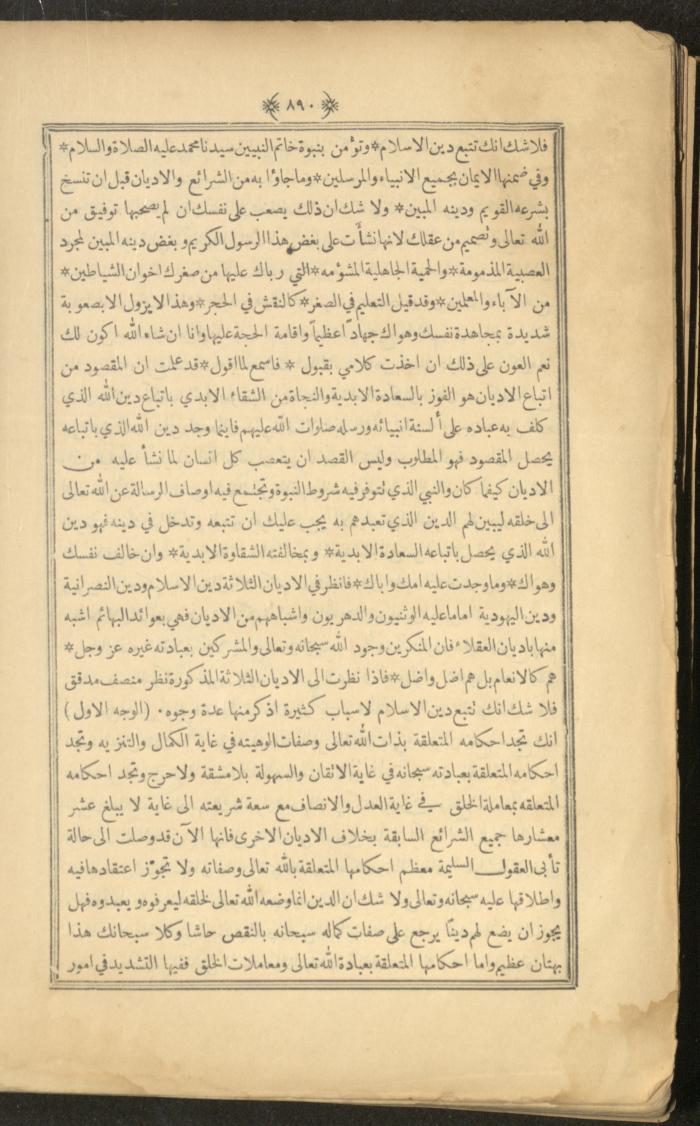 ﴿ ٨٩٠ ﴾
فلا شك انك تتبع دين الاسلام * وتؤمن بنبوة خاتم النبيين سيدنا محمد عليه الصلاة والسلام *
وفي ضمنها الايمان بجميع الانبياء والمرسلين * وما جاؤا به من الشرائع والاديان قبل ان تنسخ
بشرعه القويم ودينه المبين * ولا شك ان ذلك يصعب على نفسك ان لم يصحبها توفيق من
الله تعالى وتصميم من عقلك لانها نشأت على بغض هذا الرسول الكريم وبغض دينه المبين لمجرد
العصبية المذمومة * والحمية الجاهلية المشؤمه * التي رباك عليها من صغرك اخوان الشياطين *
من الآباء والمعلمين * وقد قيل التعليم في الصغر * كالنقش في الحجر * وهذا لا يزول الا بصعوبة
شديدة بمجاهدة نفسك وهواك جهادًا عظيمًا واقامة الحجة عليها وانا ان شاء الله اكون لك
نعم العون على ذلك ان اخذت كلامي بقبول * فاسمع لما اقول * قد علمت ان المقصود من
اتباع الاديان هو الفوز بالسعادة الابدية والنجاة من الشقاء الابدي باتباع دين الله الذي
كلف به عباده على ألسنة انبيائه ورسله صلوات الله عليهم فاينما وجد دين الله الذي باتباعه
يحصل المقصود فهو المطلوب وليس القصد ان يتعصب كل انسان لما نشأ عليه من
الاديان كيفما كان والنبي الذي تتوفر فيه شروط النبوة وتجتمع فيه اوصاف الرسالة عن الله تعالى
الى خلقه ليبين لهم الدين الذي تعبدهم به يجب عليك ان تتبعه وتدخل في دينه فهو دين
الله الذي يحصل باتباعه السعادة الابدية * وبمخالفته الشقاوة الابدية * وان خالف نفسك
وهواك * وما وجدت عليه امك واباك * فانظر في الاديان الثلاثة دين الاسلام ودين النصرانية
ودين اليهودية اما ما عليه الوثنيون والدهريون واشباههم من الاديان فهي بعوائد البهائم اشبه
منها باديان العقلاء فان المنكرين وجود الله سبحانه وتعالى والمشركين بعبادته غيره عز وجل *
هم كالانعام بل هم اضل واضل * فاذا نظرت الى الاديان الثلاثة المذكورة نظر منصف مدقق
فلا شك انك تتبع دين الاسلام لاسباب كثيرة اذكر منها عدة وجوه . (الوجه الاول)
انك تجد احكامه المتعلقة بذات الله تعالى وصفات الوهيته في غاية الكمال والتنزيه وتجد
احكامه المتعلقة بعبادته سبحانه في غاية الاتقان والسهولة بلا مشقة ولا حرج وتجد احكامه
المتعلقه بمعاملة الخلق في غاية العدل والانصاف مع سعة شريعته الى غاية لا يبلغ عشر
معشارها جميع الشرائع السابقة بخلاف الاديان الاخرى فانها الآن قد وصلت الى حالة
تأبى العقول السليمة معظم احكامها المتعلقة بالله تعالى وصفاته ولا تجوّز اعتقادها فيه
واطلاقها عليه سبحانه وتعالى ولا شك ان الدين انما وضعه الله تعالى لخلقه ليعرفوه ويعبدوه فهل
يجوز ان يضع لهم دينًا يرجع على صفات كماله سبحانه بالنقص حاشا وكلا سبحانك هذا
بهتان عظيم واما احكامها المتعلقة بعبادة الله تعالى ومعاملات الخلق ففيها التشديد في امور